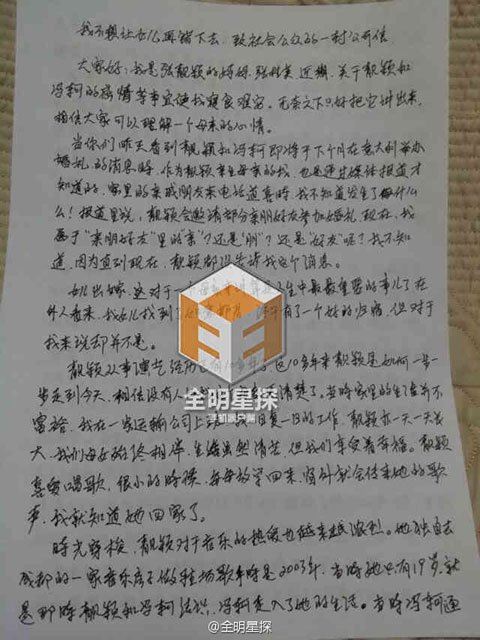 我不想让女儿再错下去 致社会公众的一封公开信
大家好，我是张靓颖的妈妈，张桂英 近期，关于靓颖和
冯柯的婚情等事宜使我寝食难安。无奈之下只好把它讲出来，
相信大家可以理解一个母亲的心情。
当你们昨天看到靓颖和冯柯即将于下个月在意大利举办
婚礼的消息时，作为靓颖亲生母亲的我，也是通过媒体报道才
知道的，家里的亲戚朋友来电话道喜时，我不知道发生了什
么！报道里说，靓颖会邀请部分亲朋好友参加婚礼 现在，我
属于“亲朋好友”里的“亲”？还是“朋”？还是“好友”呢？我不知
道，因为直到现在，靓颖都没告诉我这个消息。
女儿出嫁，这对于一个母亲 生中最重要的事儿了 在
外人看来，我女儿找到了 有了一个她的归宿，但对于
我来说却并不是。
靓颖从事演艺 10多年来靓颖是如何一步一
步走到今天，相信没有人 清楚了。当时家里的生活并不
富裕，我在一家运输公司上 日复一日的工作，靓颖亦一天一天长
大，我们母女始终相伴，生活虽然清苦，但我们享受着幸福。靓颖
喜爱唱歌，很小的时候，每每放学回来，窗外就会传来她的歌
声，我就知道她回家了。
时光穿梭，靓颖对于音乐的热爱也越来越浓烈。她独自去
成都的一家音乐房子做驻场歌手时是2003年，当时她只有19岁，就
是那时靓颖和冯柯结识，冯柯走入了她的生活。当时冯柯通
全明星探
@全明星探